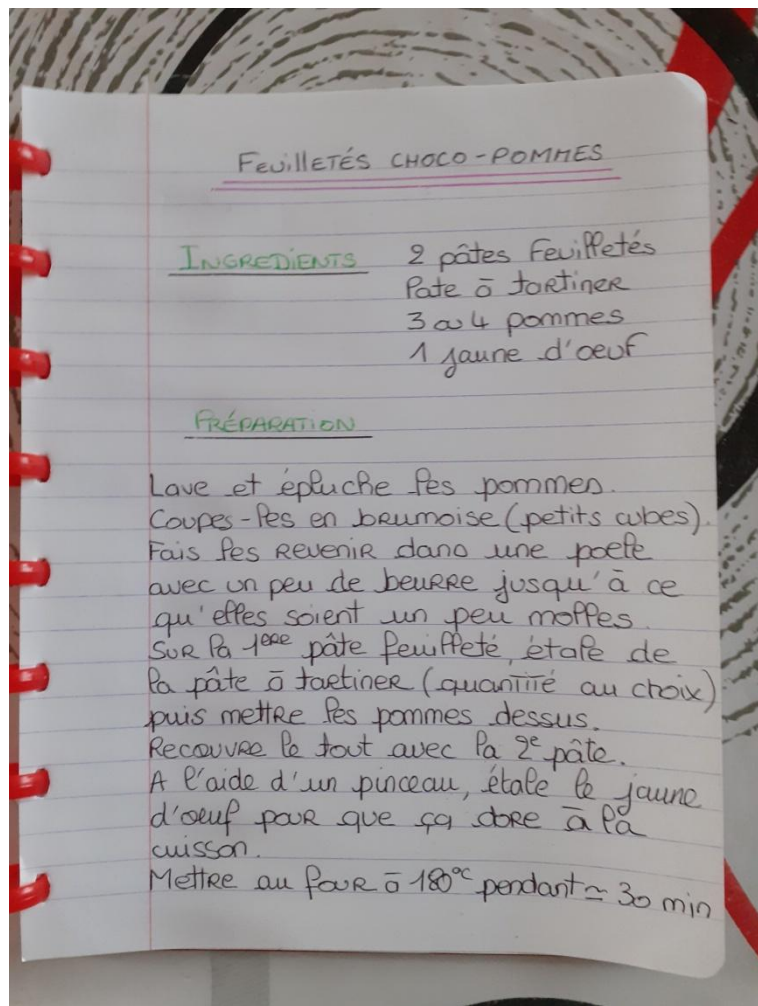 FEUILLETÉS CHOCO-POMMES
INGREDIENTS 2 pâtes feuilletés
Pate à tartiner
3 à 4 pommes
1 jaune d'oeuf
PRÉPARATION
Lave et épluche les pommes.
Coupes-les en brumoise (petits cubes).
Fais les revenir dans une poele
avec un peu de beurre jusqu'à ce
qu'elles soient un peu molles.
Sur la 1ere pâte feuilleté, étale de
la pâte à tartiner (quantité au choix)
puis mettre les pommes dessus.
Recouvre le tout avec la 2e pâte.
A l'aide d'un pinceau, étale le jaune
d'oeuf pour que ça dore à la
cuisson.
Mettre au four à 180°C pendant ≃ 30 min